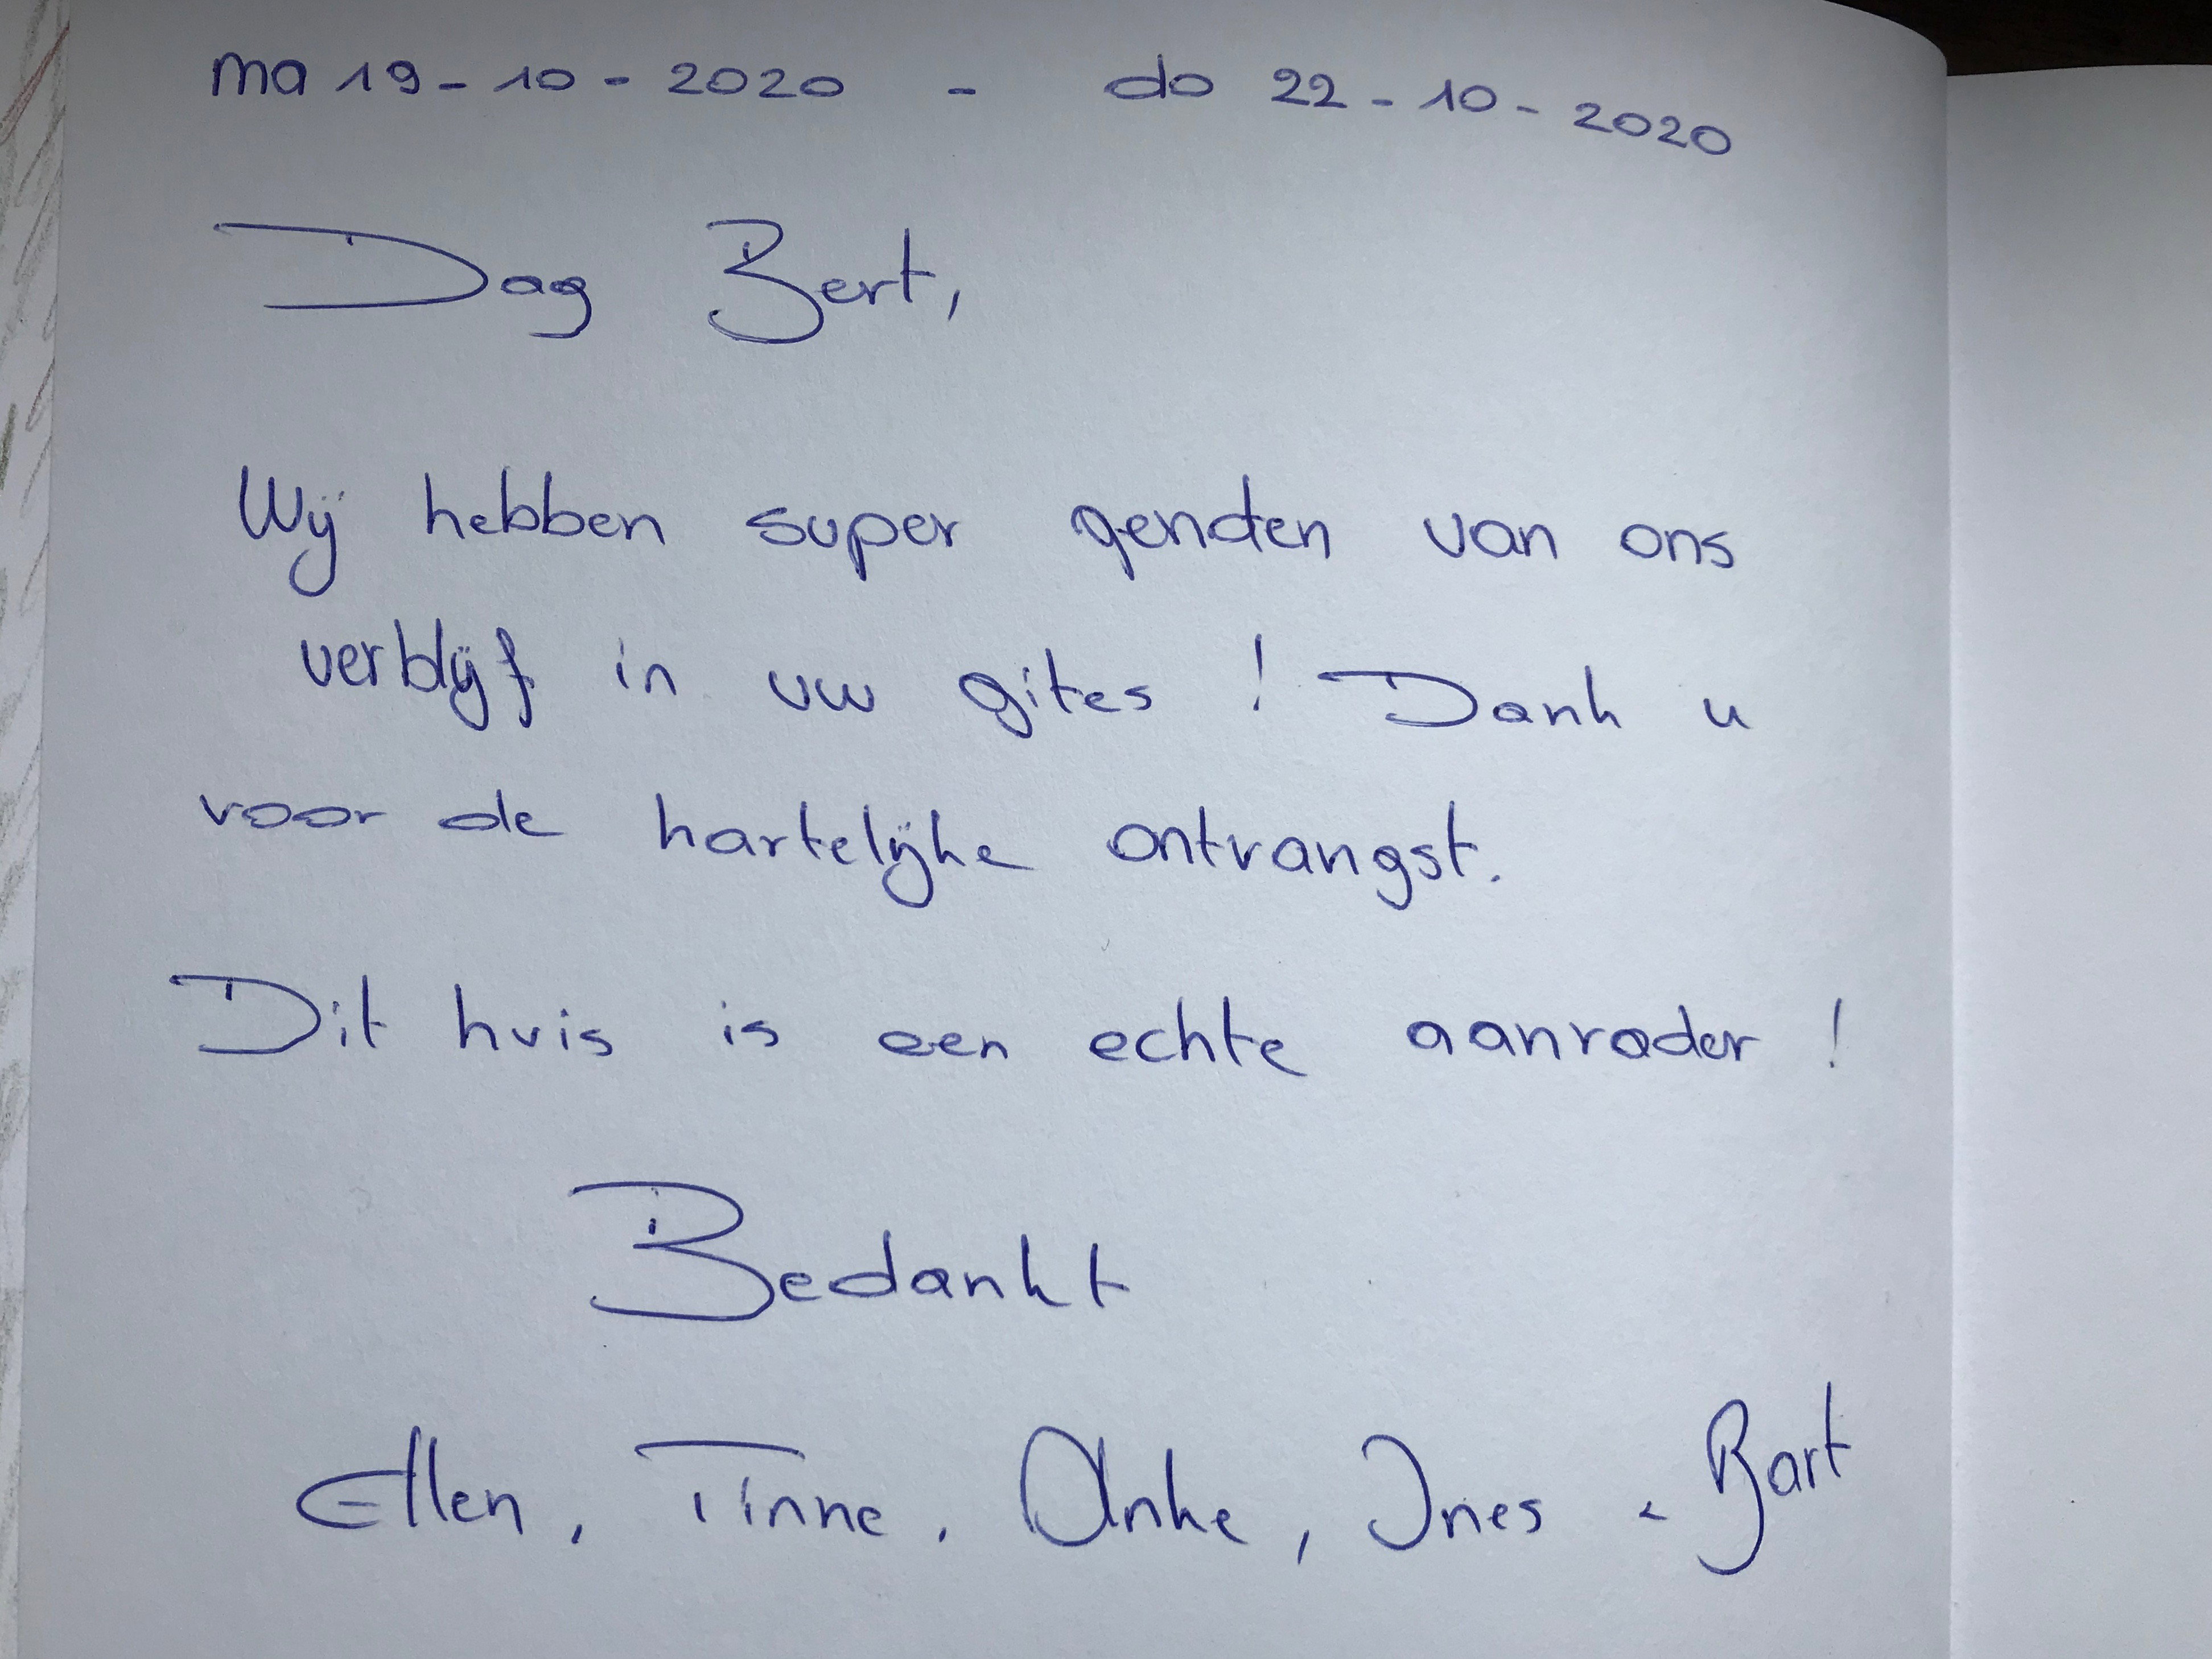 ma 19-10-2020 - do 22-10-2020
Dag Bert,
Wij hebben super genden van ons
verblijf in uw gites ! Dank u
voor de hartelijke ontvangst.
Dit huis is een echte aanrader !
Bedankt
Ellen, Tinne, Anke, Ines & Bart